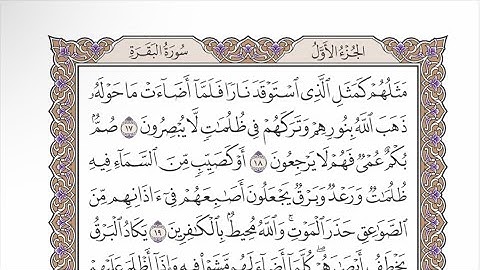 سُورَةُ البَقَرَةِ الجُزْءُ الأَوَّلُ
مَثَلُهُمْ كَمَثَلِ ٱلَّذِى ٱسْتَوْقَدَ نَارًا فَلَمَّآ أَضَآءَتْ مَا حَوْلَهُۥ
ذَهَبَ ٱللَّهُ بِنُورِهِمْ وَتَرَكَهُمْ فِى ظُلُمَٰتٍ لَّا يُبْصِرُونَ ١٧ صُمٌّۢ
بُكْمٌ عُمْىٌ فَهُمْ لَا يَرْجِعُونَ ١٨ أَوْ كَصَيِّبٍ مِّنَ ٱلسَّمَآءِ فِيهِ
ظُلُمَٰتٌ وَرَعْدٌ وَبَرْقٌ يَجْعَلُونَ أَصَٰبِعَهُمْ فِىٓ ءَاذَانِهِم مِّنَ
ٱلصَّوَٰعِقِ حَذَرَ ٱلْمَوْتِ ۚ وَٱللَّهُ مُحِيطٌۢ بِٱلْكَٰفِرِينَ ١٩ يَكَادُ ٱلْبَرْقُ
يَخْطَفُ أَبْصَٰرَهُمْ ۖ كُلَّمَآ أَضَآءَ لَهُم مَّشَوْا۟ فِيهِ وَإِذَآ أَظْلَمَ عَلَيْهِمْ